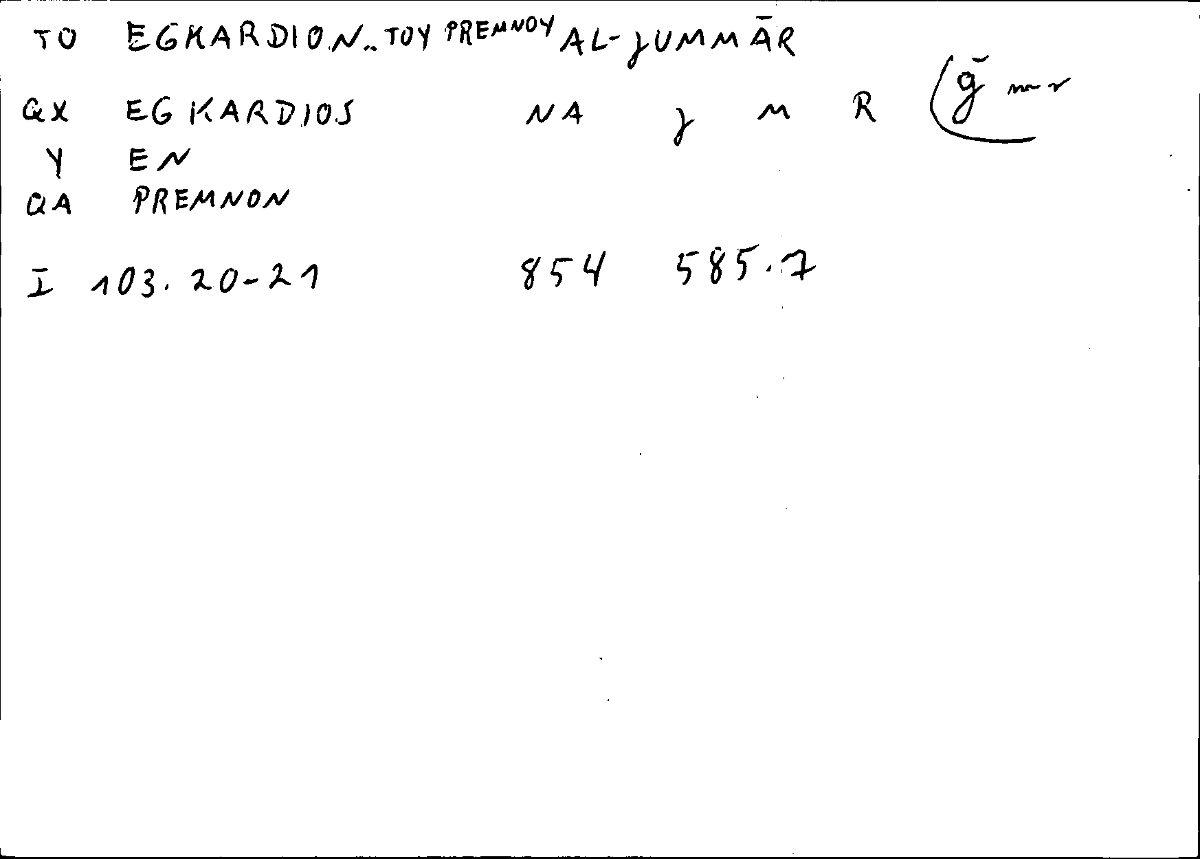 TO EGKARDION.. TOY PREMNOY AL-ɣUMMĀR
QX EGKARDIOS NA ɣ M R (ḡ m r
Y EN
QA PREMNON
I 103. 20-21 854 585.7